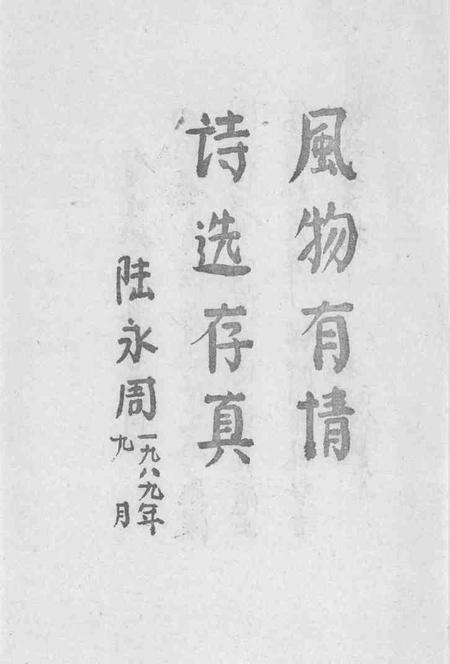 風物有情
诗选存真
陆永周
一九八九年
九月